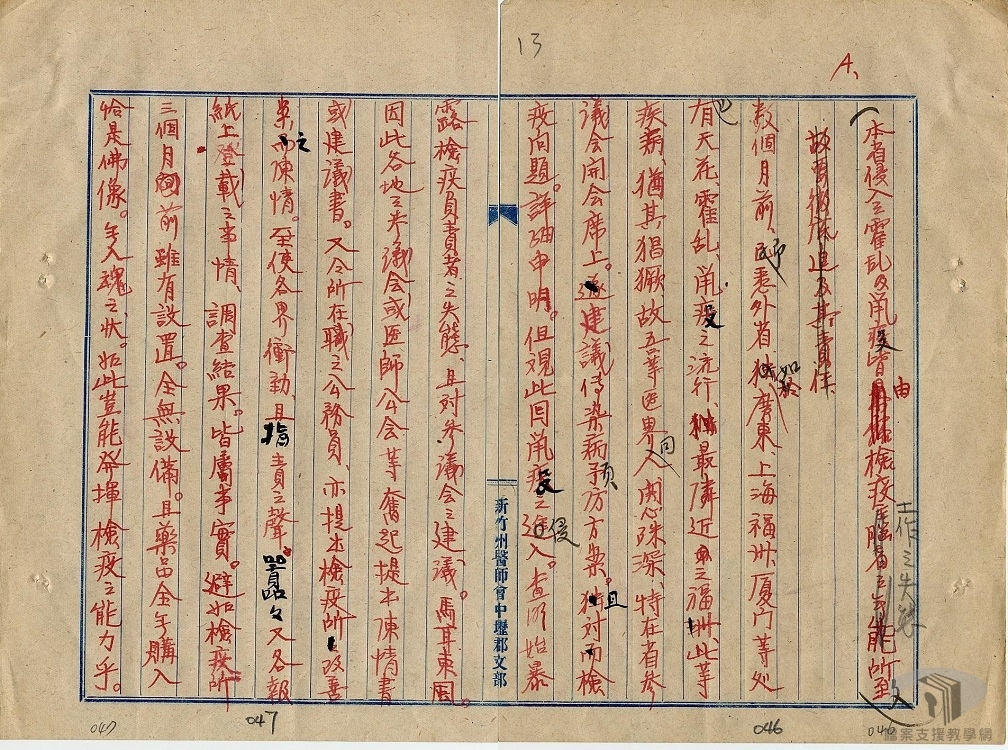 13
A、
本省侵入之霍乱及鼠疫皆由檢疫工作之失態所致
故要徹底追及其責任
数個月前、即悉外省如廣東、上海福州、厦门等处
有天花、霍乱、鼠疫之流行、最隣近之福州、此等
疾病、猶其猖獗故吾等医界同人関心殊深、特在省参
議会開会席上。逐建議传染病予防方案。且对而檢
疫问題。詳細申明。但观此回鼠疫之侵入。查須始暴
露檢疫負責者之失態、且対参議会之建議。馬耳東風。
因此各地之参議会或医師公会等奮起提出陳情書
或建議書。又令所在職之公務員、亦提出檢疫所改善
案之陳情。至使各界衝動、且指責之聲。囂々又各報
紙上登載之事情、調查結果。皆属事實。譬如檢疫所
三個月前雖有設置。全無設備。且藥品全年購入
恰是佛像。年入魂之状。如此豈能発揮檢疫之能力乎。
新竹州醫師會中壢郡支部
047
047
046
046
檔案支援教學網